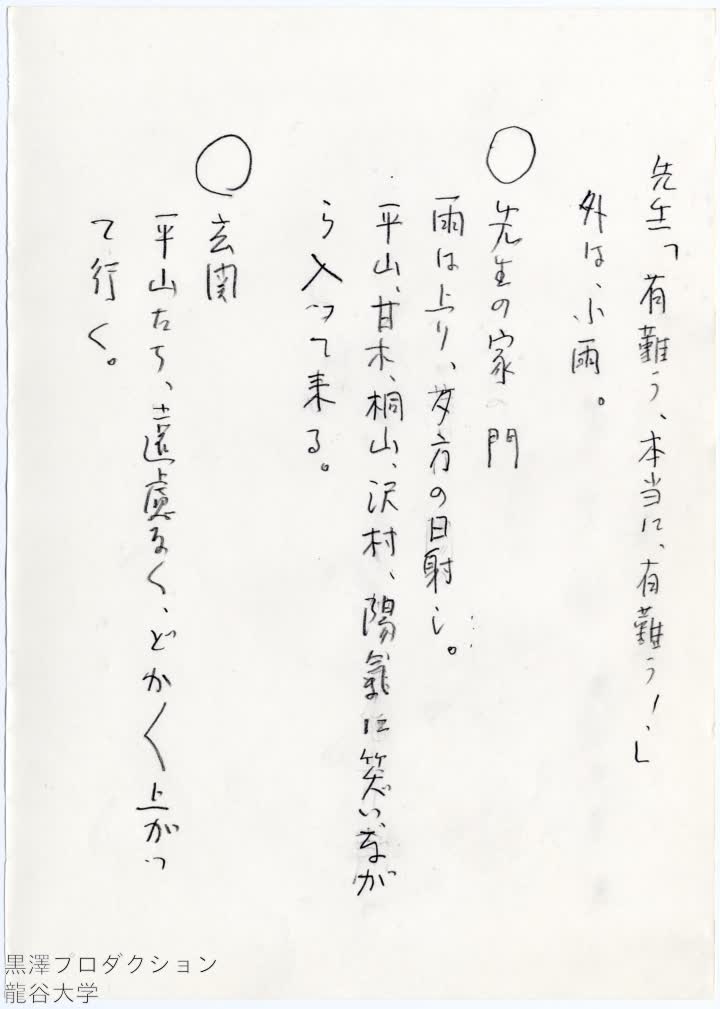 先生「有難う、本当に、有難う！」
外は、小雨。
○先生の家の門
雨は上り、夕方の日射し。
平山、甘木、桐山、沢村、陽氣に笑いなが
ら入って来る。
○玄関
平山たち、遠慮なく、どか〱上がっ
て行く。
黒澤プロダクション
龍谷大学